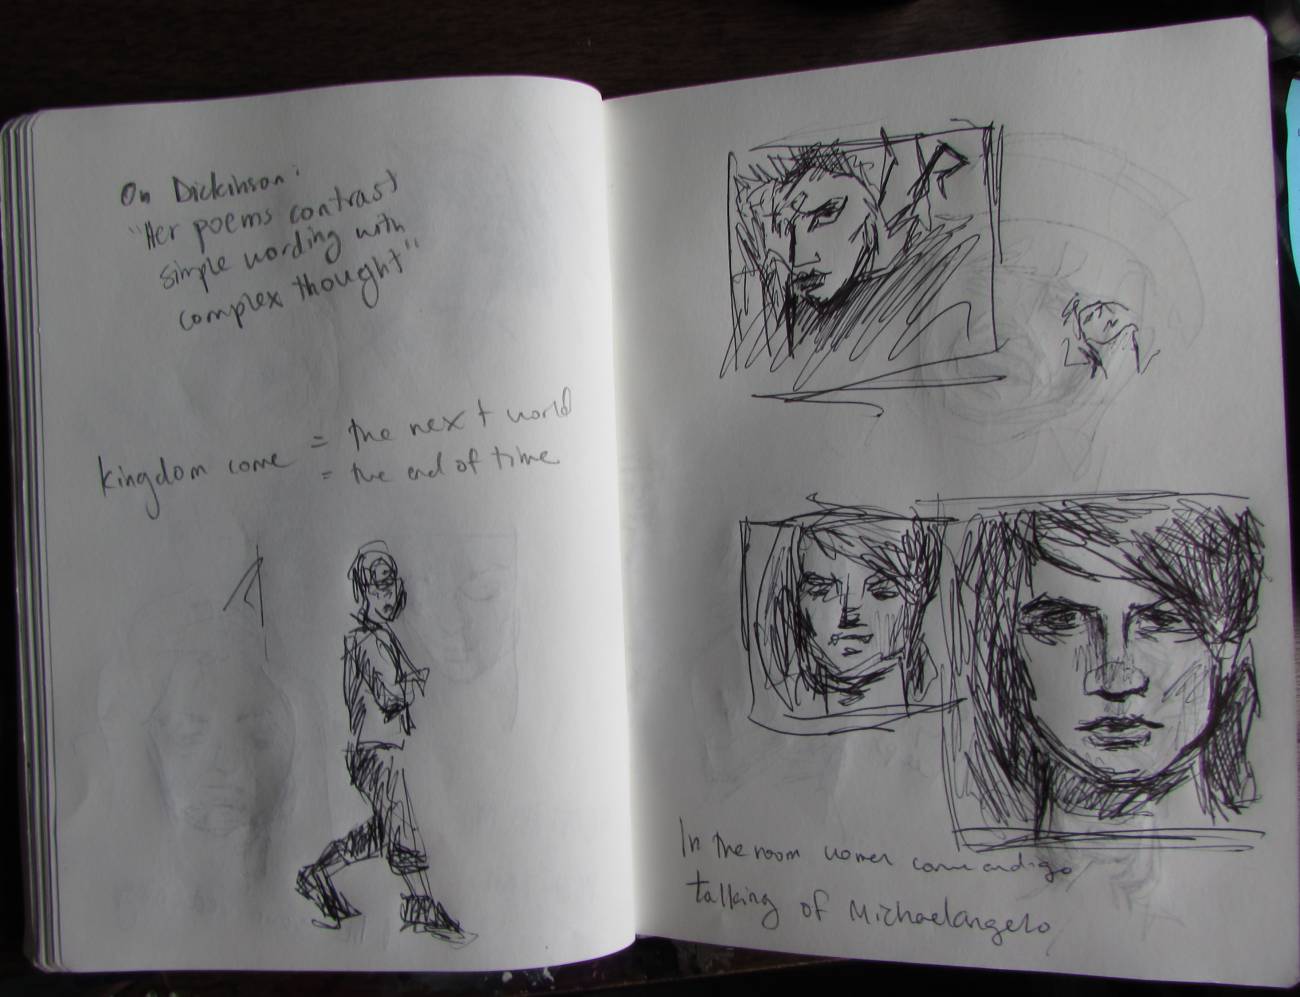 On Dickinson:
"Her poems contrast
simple wording with
complex thought"
kingdom come = the next world
= the end of time
In the room women come and go
talking of Michaelangelo